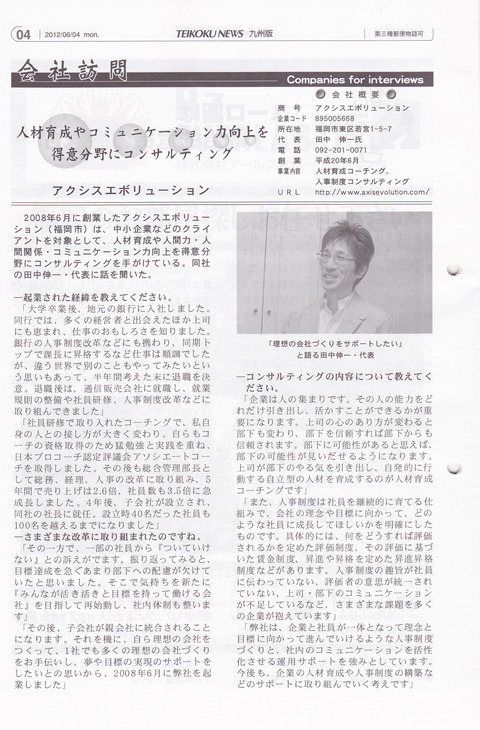 04
2012/06/04 mon.
TEIKOKU NEWS 九州版
第三種郵便物認可
会社訪問
Companies for interviews
人材育成やコミュニケーション力向上を
得意分野にコンサルティング
アクシスエボリューション
会社概要
商号 アクシスエボリューション
企業コード 895005668
所在地 福岡市東区若宮1-5-7
代表 田中 伸一氏
電話 092-201-0071
創業 平成20年6月
事業内容 人材育成コーチング、
人事制度コンサルティング
URL http://www.axisevolution.com/
2008年6月に創業したアクシスエボリュー
ション（福岡市）は、中小企業などのクライ
アントを対象として、人材育成や人間力・人
間関係・コミュニケーション力向上を得意分
野にコンサルティングを手がけている。同社
の田中伸一・代表に話を聞いた。
―起業された経緯を教えてください。
「大学卒業後、地元の銀行に入社しました。
同行では、多くの経営者と出会えたほか上司
にも恵まれ、仕事のおもしろさを知りました。
銀行の人事制度改革などにも携わり、同期ト
ップで課長に昇格するなど仕事は順調でした
が、違う世界で別のこともやってみたいとい
う思いもあって、半年間考えた末に退職を決
意。退職後は、通信販売会社に就職し、就業
規則の整備や社員研修、人事制度改革などに
取り組んできました」
「社員研修で取り入れたコーチングで、私自
身の人との接し方が大きく変わり、自らもコ
ーチの資格取得のため猛勉強と実践を重ね、
日本プロコーチ認定評議会アソシエートコー
チを取得しました。その後も総合管理部長と
して総務、経理、人事の改革に取り組み、5
年間で売り上げは2.6倍、社員数も3.5倍に急
成長しました。4年後、子会社が設立され、
同社の社長に就任。設立時40名だった社員も
100名を越えるまでになりました」
―さまざまな改革に取り組まれたのですね。
「その一方で、一部の社員から『ついていけ
ない』との訴えがでます。振り返ってみると、
目標達成を急ぐあまり部下への配慮が欠けて
いたと思いました。そこで気持ちを新たに
『みんなが活き活きと目標を持って働ける会
社』を目指して再始動し、社内体制も整いま
す」
「その後、子会社が親会社に統合されること
になります。それを機に、自ら理想の会社を
つくって、1社でも多くの理想の会社づくり
をお手伝いし、夢や目標の実現のサポートを
したいとの思いから、2008年6月に弊社を起
業しました」
「理想の会社づくりをサポートしたい」
と語る田中伸一・代表
―コンサルティングの内容について教えてく
ださい。
「企業は人の集まりです。その人の能力をど
れだけ引き出し、活かすことができるかが重
要になります。上司の心のあり方が変わると
部下も変わり、部下を信頼すれば部下からも
信頼されます。部下に可能性があると思えば、
部下の可能性が見いだせるようになります。
上司が部下のやる気を引き出し、自発的に行
動する自立型の人材を育成するのが人材育成
コーチングです」
「また、人事制度は社員を継続的に育てる仕
組みで、会社の理念や目標に向かって、どの
ような社員に成長してほしいかを明確にした
ものです。具体的には、何をどうすれば評価
されるかを定めた評価制度、その評価に基づ
いた賃金制度、昇進や昇格を定めた昇進昇格
制度などがあります。人事制度の趣旨が社員
に伝わっていない、評価者の意思が統一され
ていない、上司・部下のコミュニケーション
が不足しているなど、さまざまな課題を多く
の企業が抱えています」
「弊社は、企業と社員が一体となって理念と
目標に向かって進んでいけるような人事制度
づくりと、社内のコミュニケーションを活性
化させる運用サポートを強みとしています。
今後も、企業の人材育成や人事制度の構築な
どのサポートに取り組んでいく考えです」